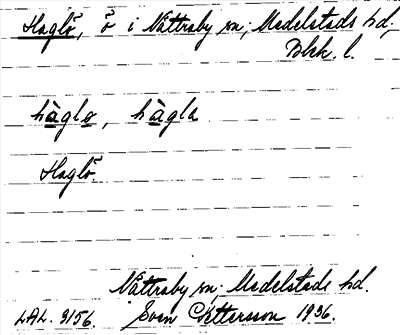 Haglö, ö i Nättraby sn, Medelstads hd,
Blek. l.
hàglo, hàgla
Haglö
Nättraby sn, Medelstads hd.
LAL. 3156. Sven Pettersson 1936.